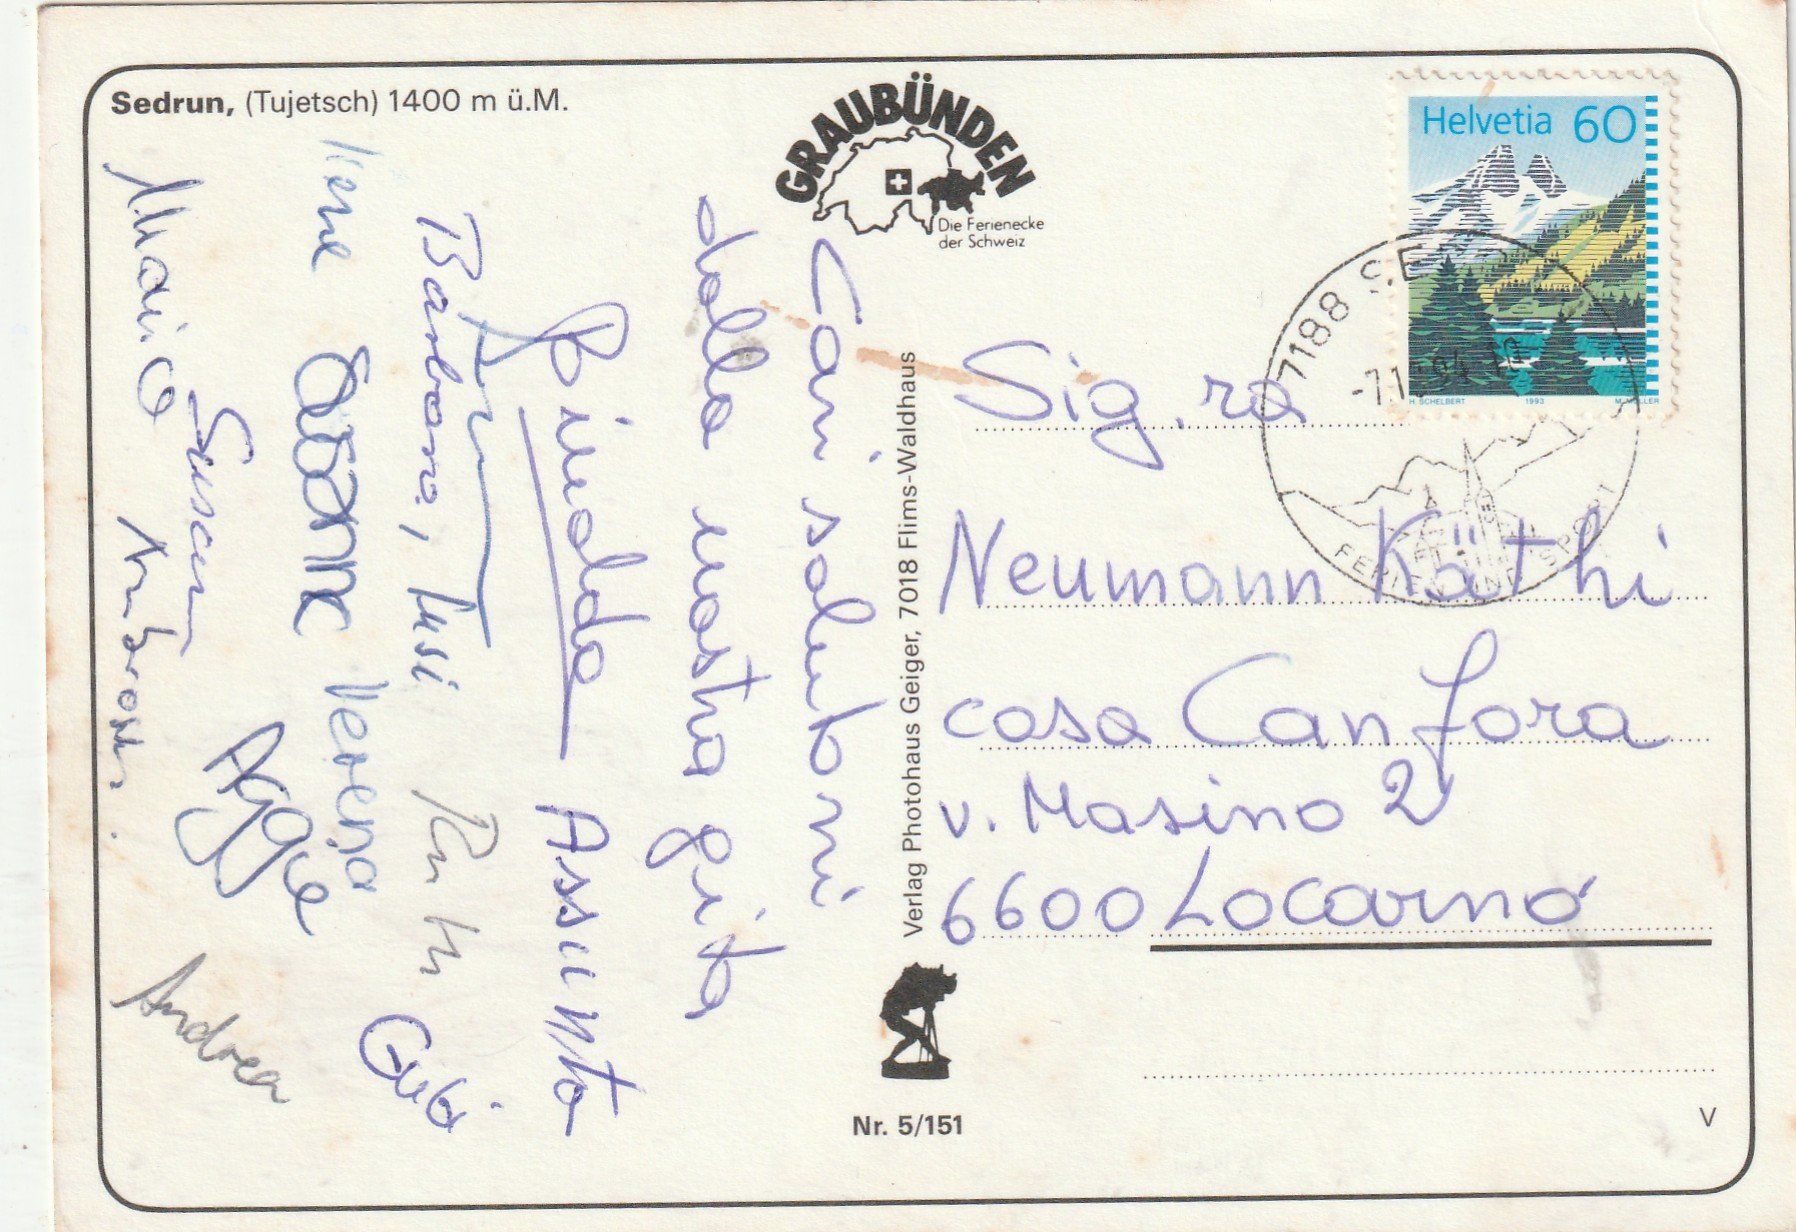 Sedrun, (Tujetsch) 1400 m ü.M.
GRAUBÜNDEN
Die Ferienecke
der Schweiz
Helvetia 60
H SCHELBERT 1993 M. MÜLLER
7188 SE
94
FERIEN UND SPORT
Cari saluti
dalla nostra gita
Assunta
Barbara, Susi Ruth Gubi
Verena
Susan Aggie
Andrea
Verlag Photohaus Geiger, 7018 Flims-Waldhaus
Sig.ra
Neumann Käthi
casa Canfora
v. Masino 2
6600 Locarno
Nr. 5/151
V